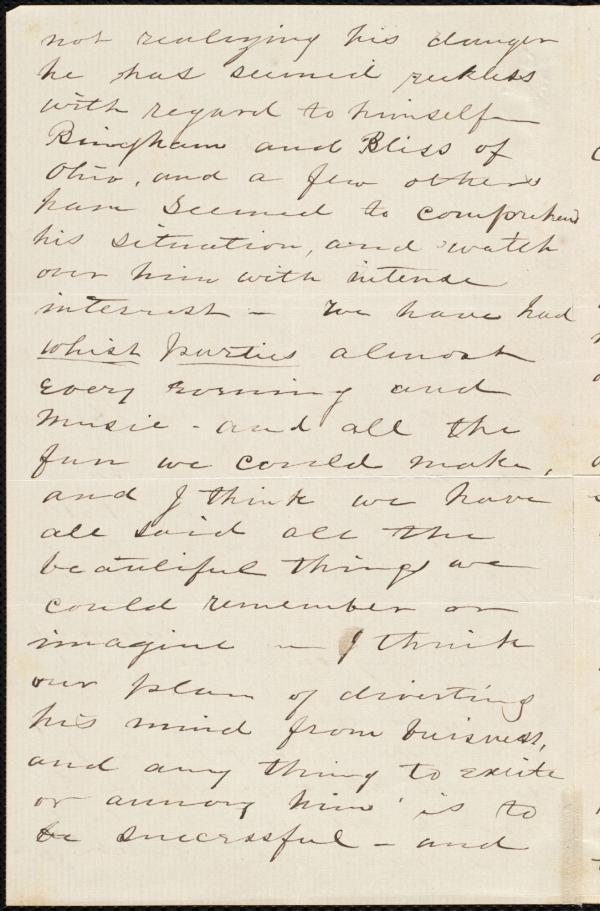 not realizing his danger
he has seemed reckless
with regard to himself –
Bingham and Bliss of
Ohio, and a few others
have seemed to comprehend
his situation, and watch
over him with intense
interest – We have had
whist parties almost
every evening and
music – and all the
fun we could make,
and I think we have
all said all the
beautiful things we
could remember or
imagine – I think
our plan of diverting
his mind from buisness,
and any thing to excite
or annoy him is to
be successful – and